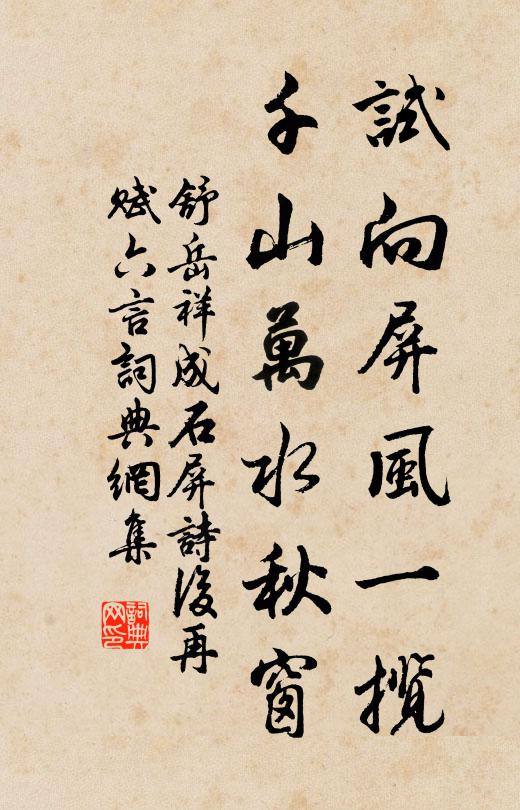 試向屏風一攬
千山萬水秋窗
舒岳祥成石屏詩後再
賦六言詞典網集
詞典網印